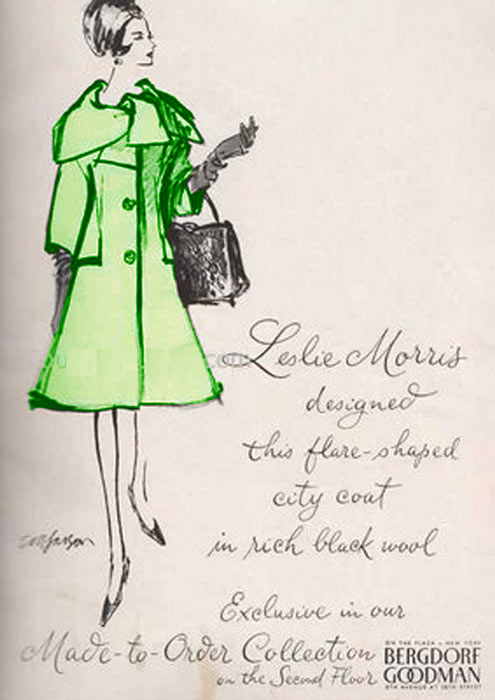 Leslie Morris
designed
this flare-shaped
city coat
in rich black wool
Exclusive in our
Made-to-Order Collection
on the Second Floor
ON THE PLAZA • NEW YORK
BERGDORF
GOODMAN
5TH AVENUE AT 58TH STREET